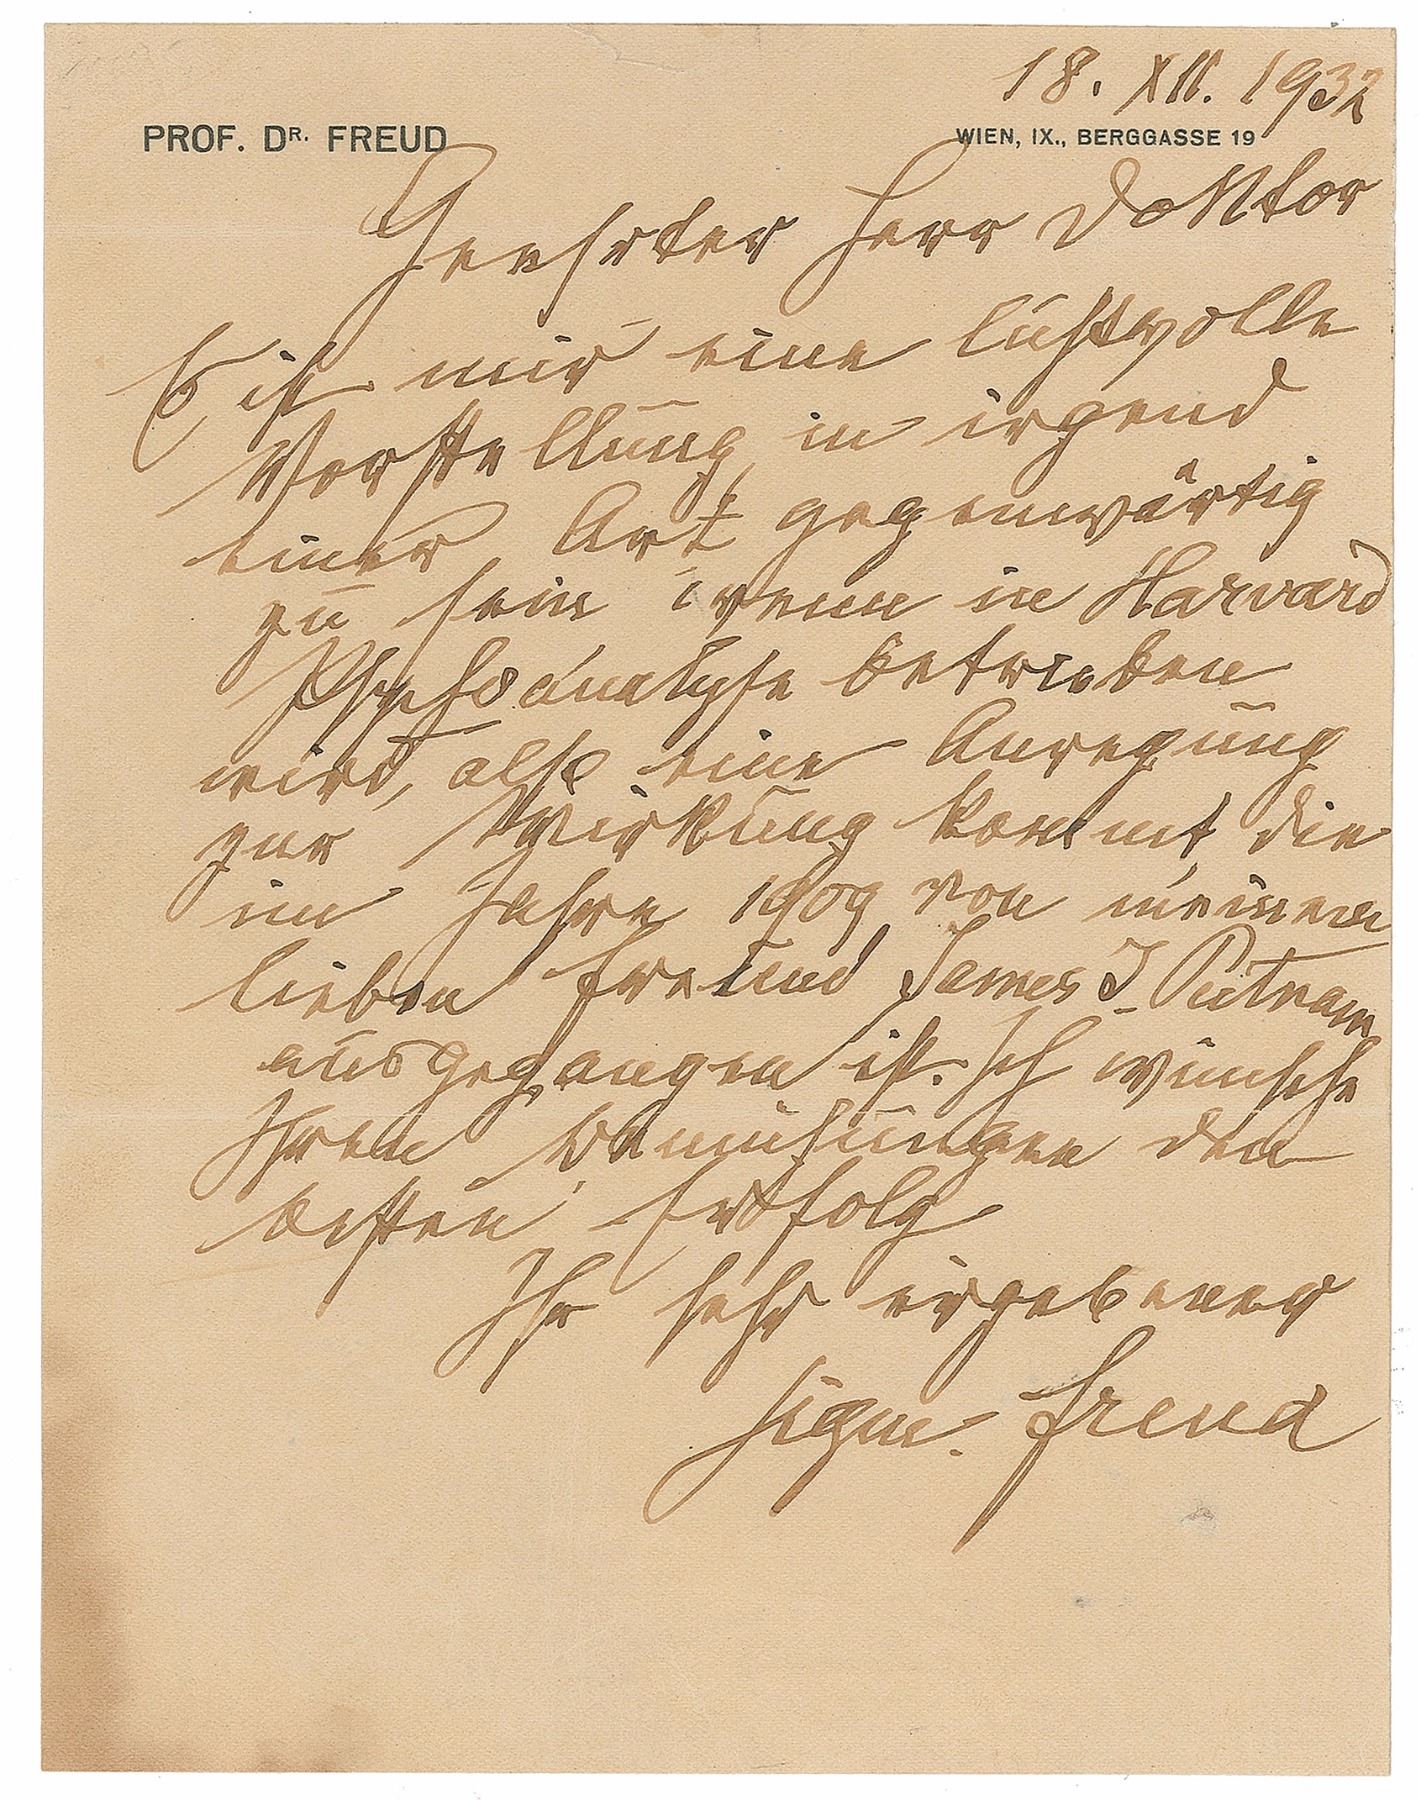 18. XII. 1932
PROF. DR. FREUD WIEN, IX., BERGGASSE 19
Geehrter Herr Doktor
Es ist mir eine lustvolle
Vorstellung in irgend
einer Art gegenwärtig
zu sein wenn in Harvard
Psychoanalyse betrieben
wird, also eine Anregung
zur Wirkung kommt die
im Jahre 1909 von meinem
lieben Freund James J Putnam
ausgegangen ist. Ich wünsche
Ihren Bemühungen den
besten Erfolg
Ihr sehr ergebener
Sigm. Freud